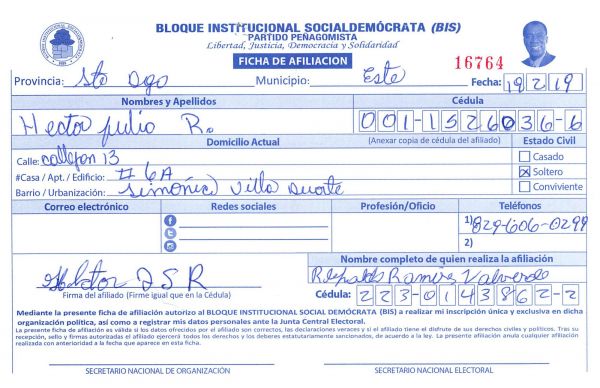 BLOQUE INSTITUCIONAL SOCIALDEMÓCRATA (BIS)
PARTIDO PEÑAGOMISTA
Libertad, Justicia, Democracia y Solidaridad
FICHA DE AFILIACION
16764
Provincia: Sto Dgo Municipio: Este Fecha: 19/2/19
Nombres y Apellidos Cédula
Hector julio R. 001-1526036-6
Domicilio Actual (Anexar copia de cédula del afiliado) Estado Civil
Calle: callejon 13 Casado
#Casa / Apt. / Edificio: # 6A Soltero
Barrio / Urbanización: Simonico Villa Duarte Conviviente
Correo electrónico Redes sociales Profesión/Oficio Teléfonos
1) 829-606-0299
2)
Nombre completo de quien realiza la afiliación
Ramirez Valverde
Hector J S R
Firma del afiliado (Firme igual que en la Cédula) Cédula: 223-0143862-2
Mediante la presente ficha de afiliación autorizo al BLOQUE INSTITUCIONAL SOCIAL DEMÓCRATA (BIS) a realizar mi inscripción única y exclusiva en dicha
organización política, así como a registrar mis datos personales ante la Junta Central Electoral.
La presente ficha de afiliación es válida si los datos ofrecidos por el afiliado son correctos, las declaraciones veraces y si el afiliado tiene el disfrute de sus derechos civiles y políticos. Tras su
recepción, sello y firmas autorizadas el afiliado ejercerá todos los derechos y los deberes estatutariamente sancionados, de acuerdo a la ley. La presente afiliación anula cualquier afiliación
realizada con anterioridad a la fecha que aparece en esta ficha.
SECRETARIO NACIONAL DE ORGANIZACIÓN SECRETARIO NACIONAL ELECTORAL